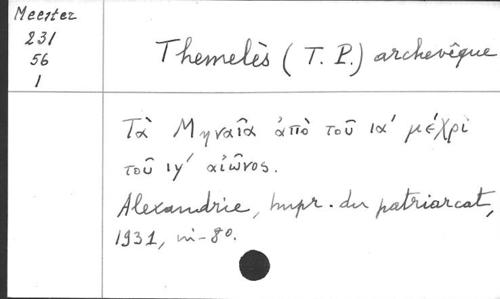 Meester
231
56
1
Themelès (T. P.) archevêque
Τὰ Μηναῖα ἀπὸ τοῦ ια' μέχρι
τοῦ ιγ' αἰῶνος.
Alexandrie, Impr. du patriarcat,
1931, in-8º.